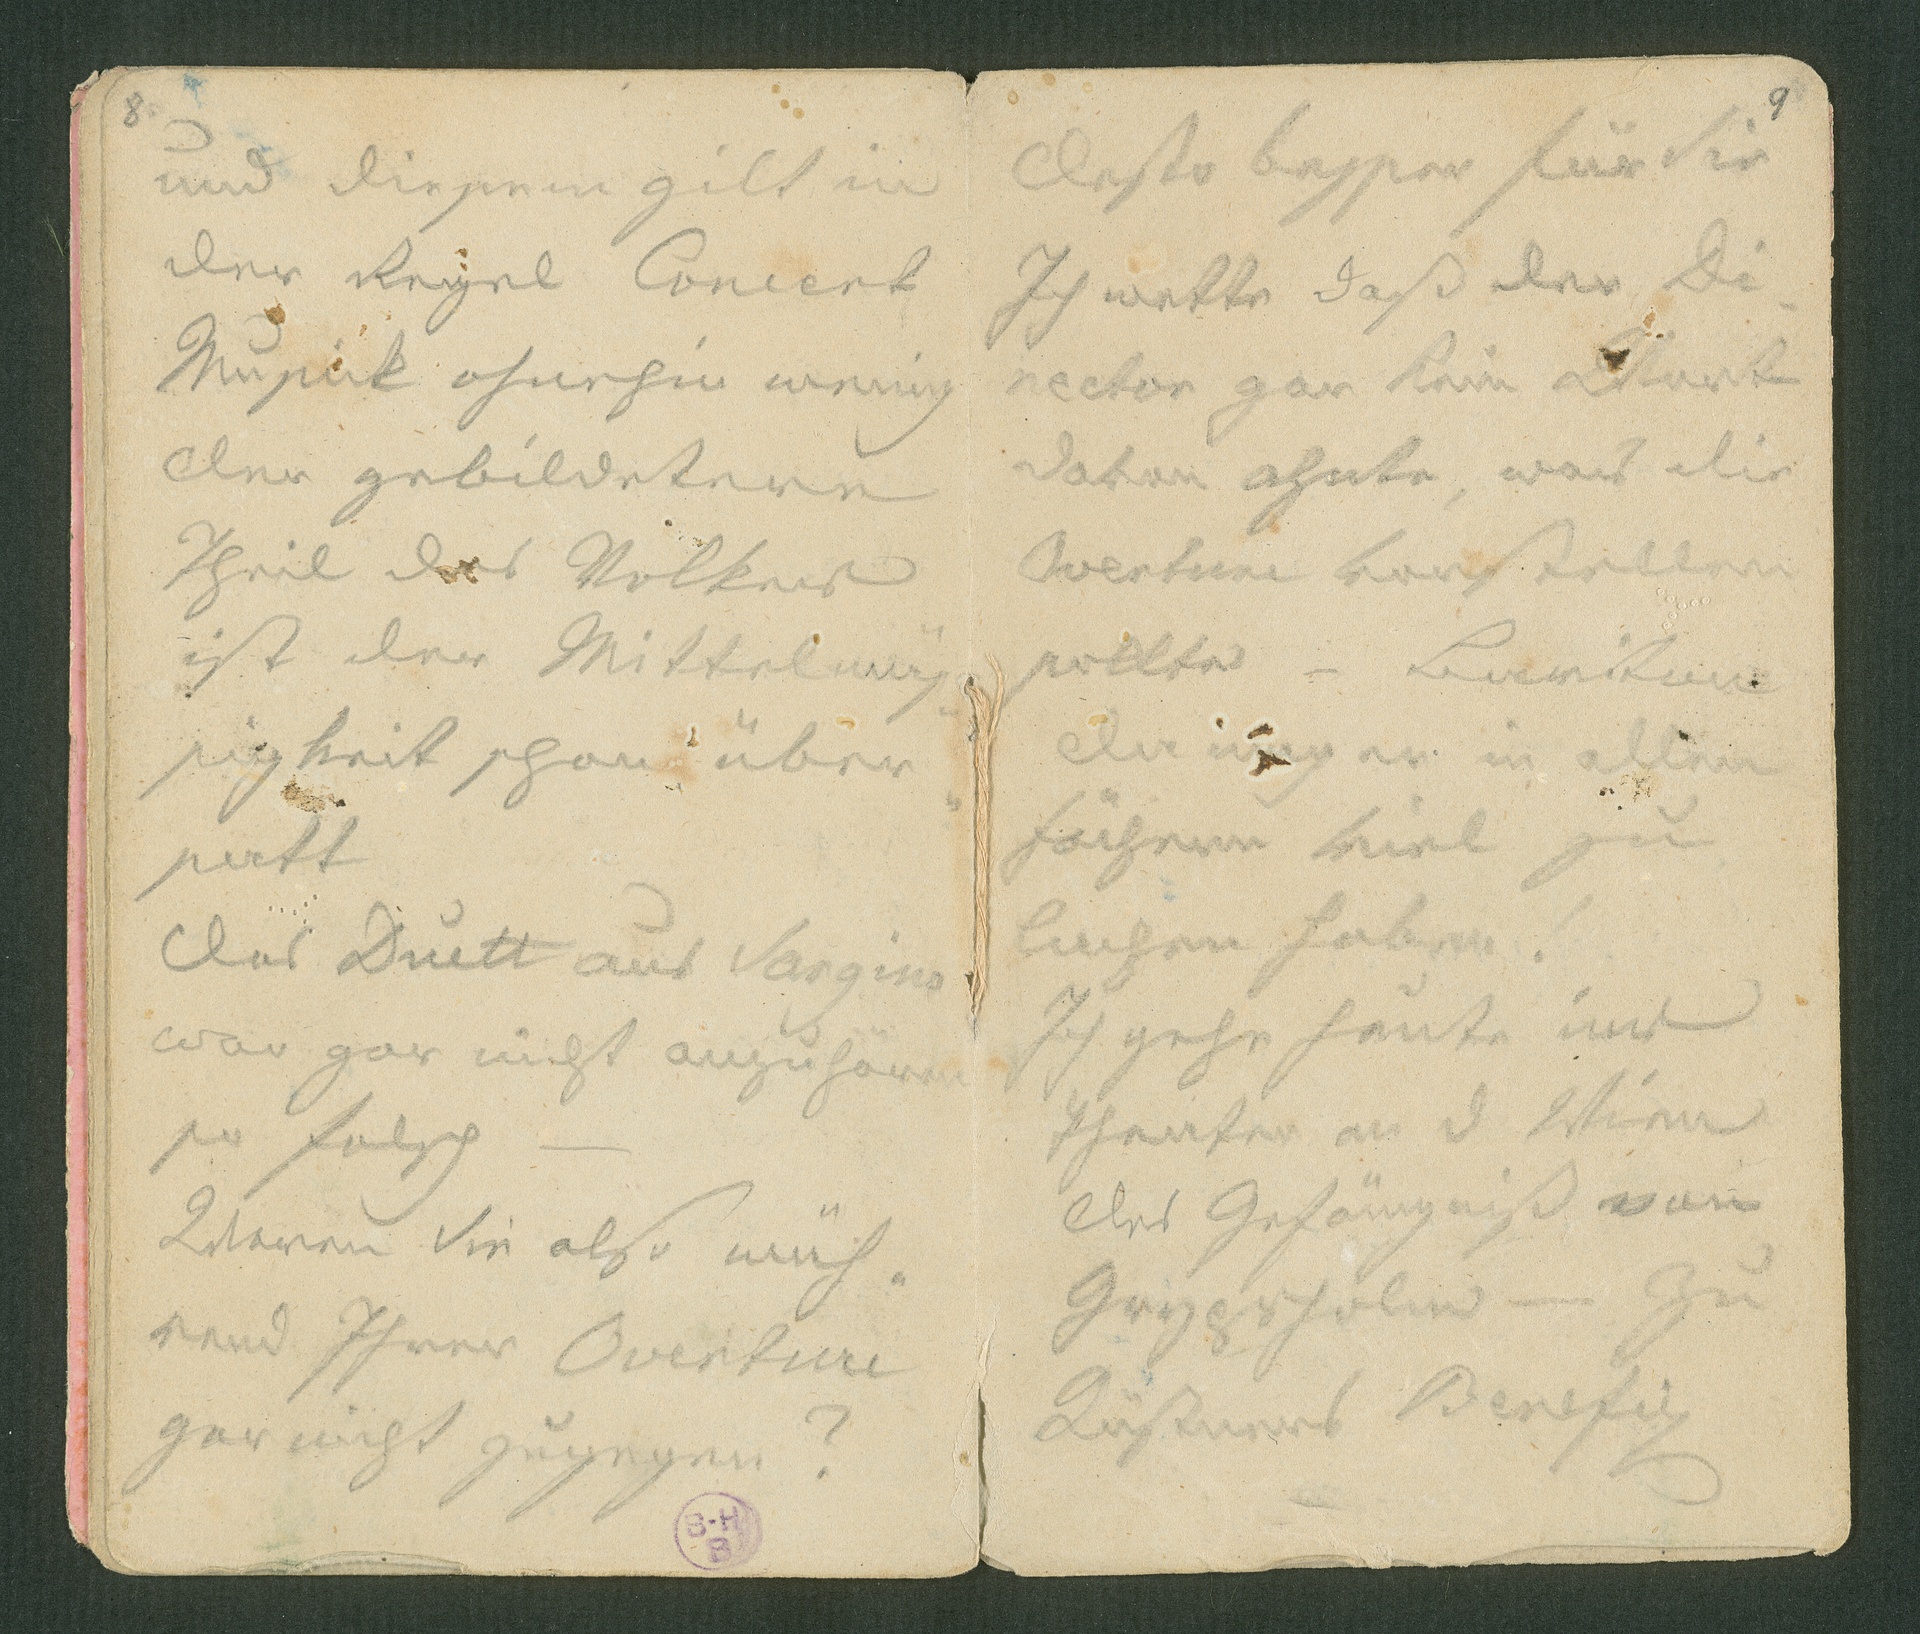 8
und diesem gilt in
der Regel Concert
Musik ohnehin wenig
der gebildetere
Theil des Volkes
ist der Mittelmä-
sigkeit schon über-
satt
Das Duett aus Sargino
war gar nicht anzuhören
so falsch —
Waren Sie also wäh-
rend Ihrer Overture
gar nicht zugegen?
B-H
B
9
Desto besser für Sie
Ich wette daß der Di-
rector gar kein Wort
davon ahnte, was die
Overture vorstellen
sollte –
da mag er in allen
Fächern viel zu
suchen haben!
Ich gehe heute ins
Theater an d Wien
das Gefängniß von
Gripsholm — Zu
Küstners Benefiz